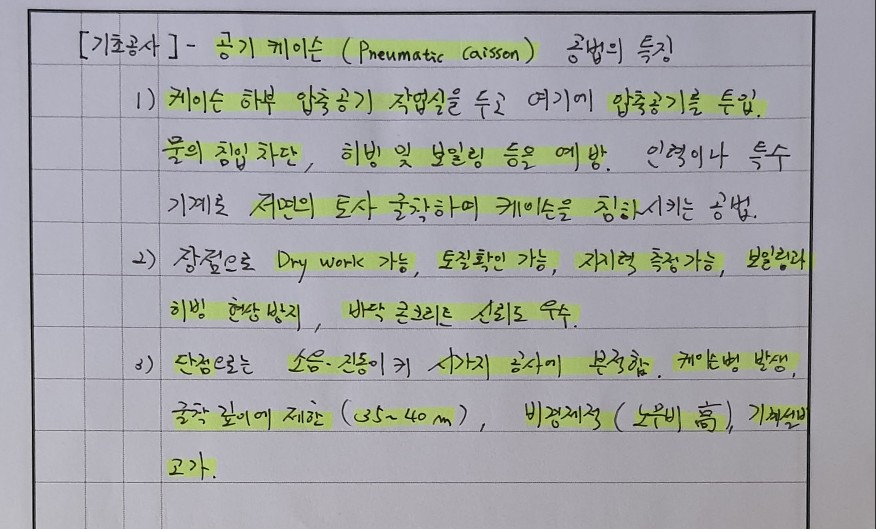 [기초공사] - 공기 케이슨 (Pneumatic Caisson) 공법의 특징
1) 케이슨 하부 압축공기 작업실을 두고 여기에 압축공기를 투입.
물의 침입 차단, 히빙 및 보일링 등을 예방. 인력이나 특수
기계로 저면의 토사 굴착하여 케이슨을 침하시키는 공법.
2) 장점으로 Dry work 가능, 토질확인 가능, 지지력 측정가능, 보일링과
히빙 현상 방지, 바닥 콘크리트 신뢰도 우수.
3) 단점으로는 소음·진동이 커 시가지 공사에 부적합. 케이슨병 발생,
굴착 깊이에 제한 (35~40m), 비경제적 (노무비 高), 기계설비
고가.